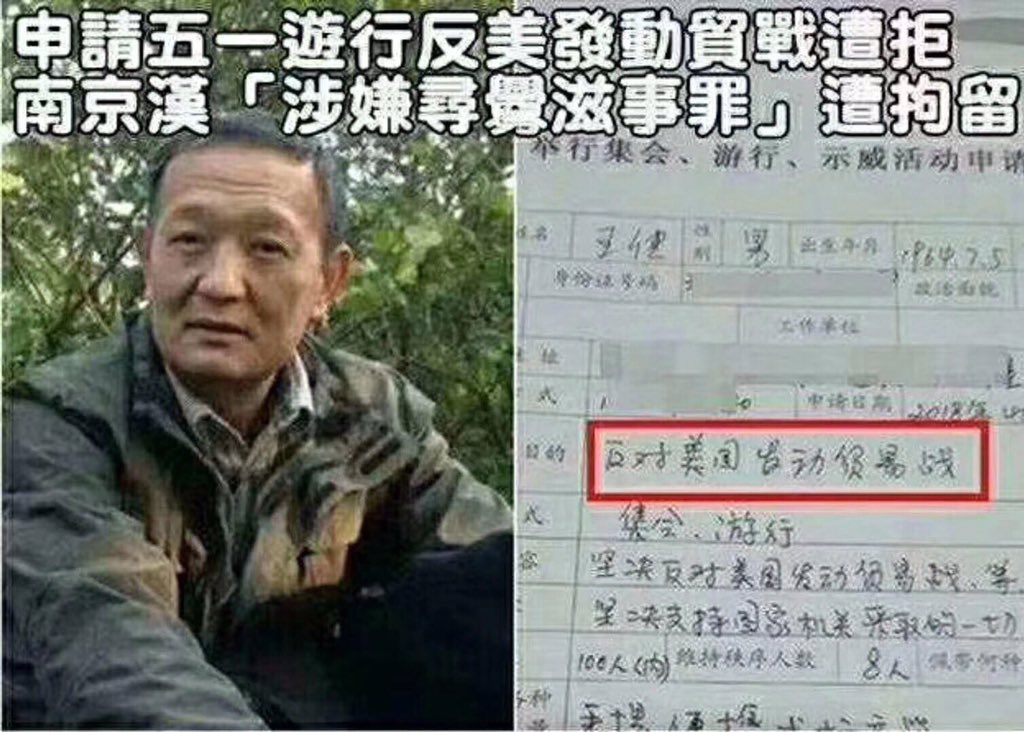 申請五一遊行反美發動貿戰遭拒
南京漢「涉嫌尋釁滋事罪」遭拘留
举行集会、游行、示威活动申请
姓名 王健 性别 男 出生年月 1964.7.5
身份证号码 3 政治面貌
工作单位
住址
式 申请日期 2018年
目的 反对美国发动贸易战
式 集会、游行
容 坚决反对美国发动贸易战、等
坚决支持国家机关采取的一切
100人(内) 维持秩序人数 8人 携带何种
各种